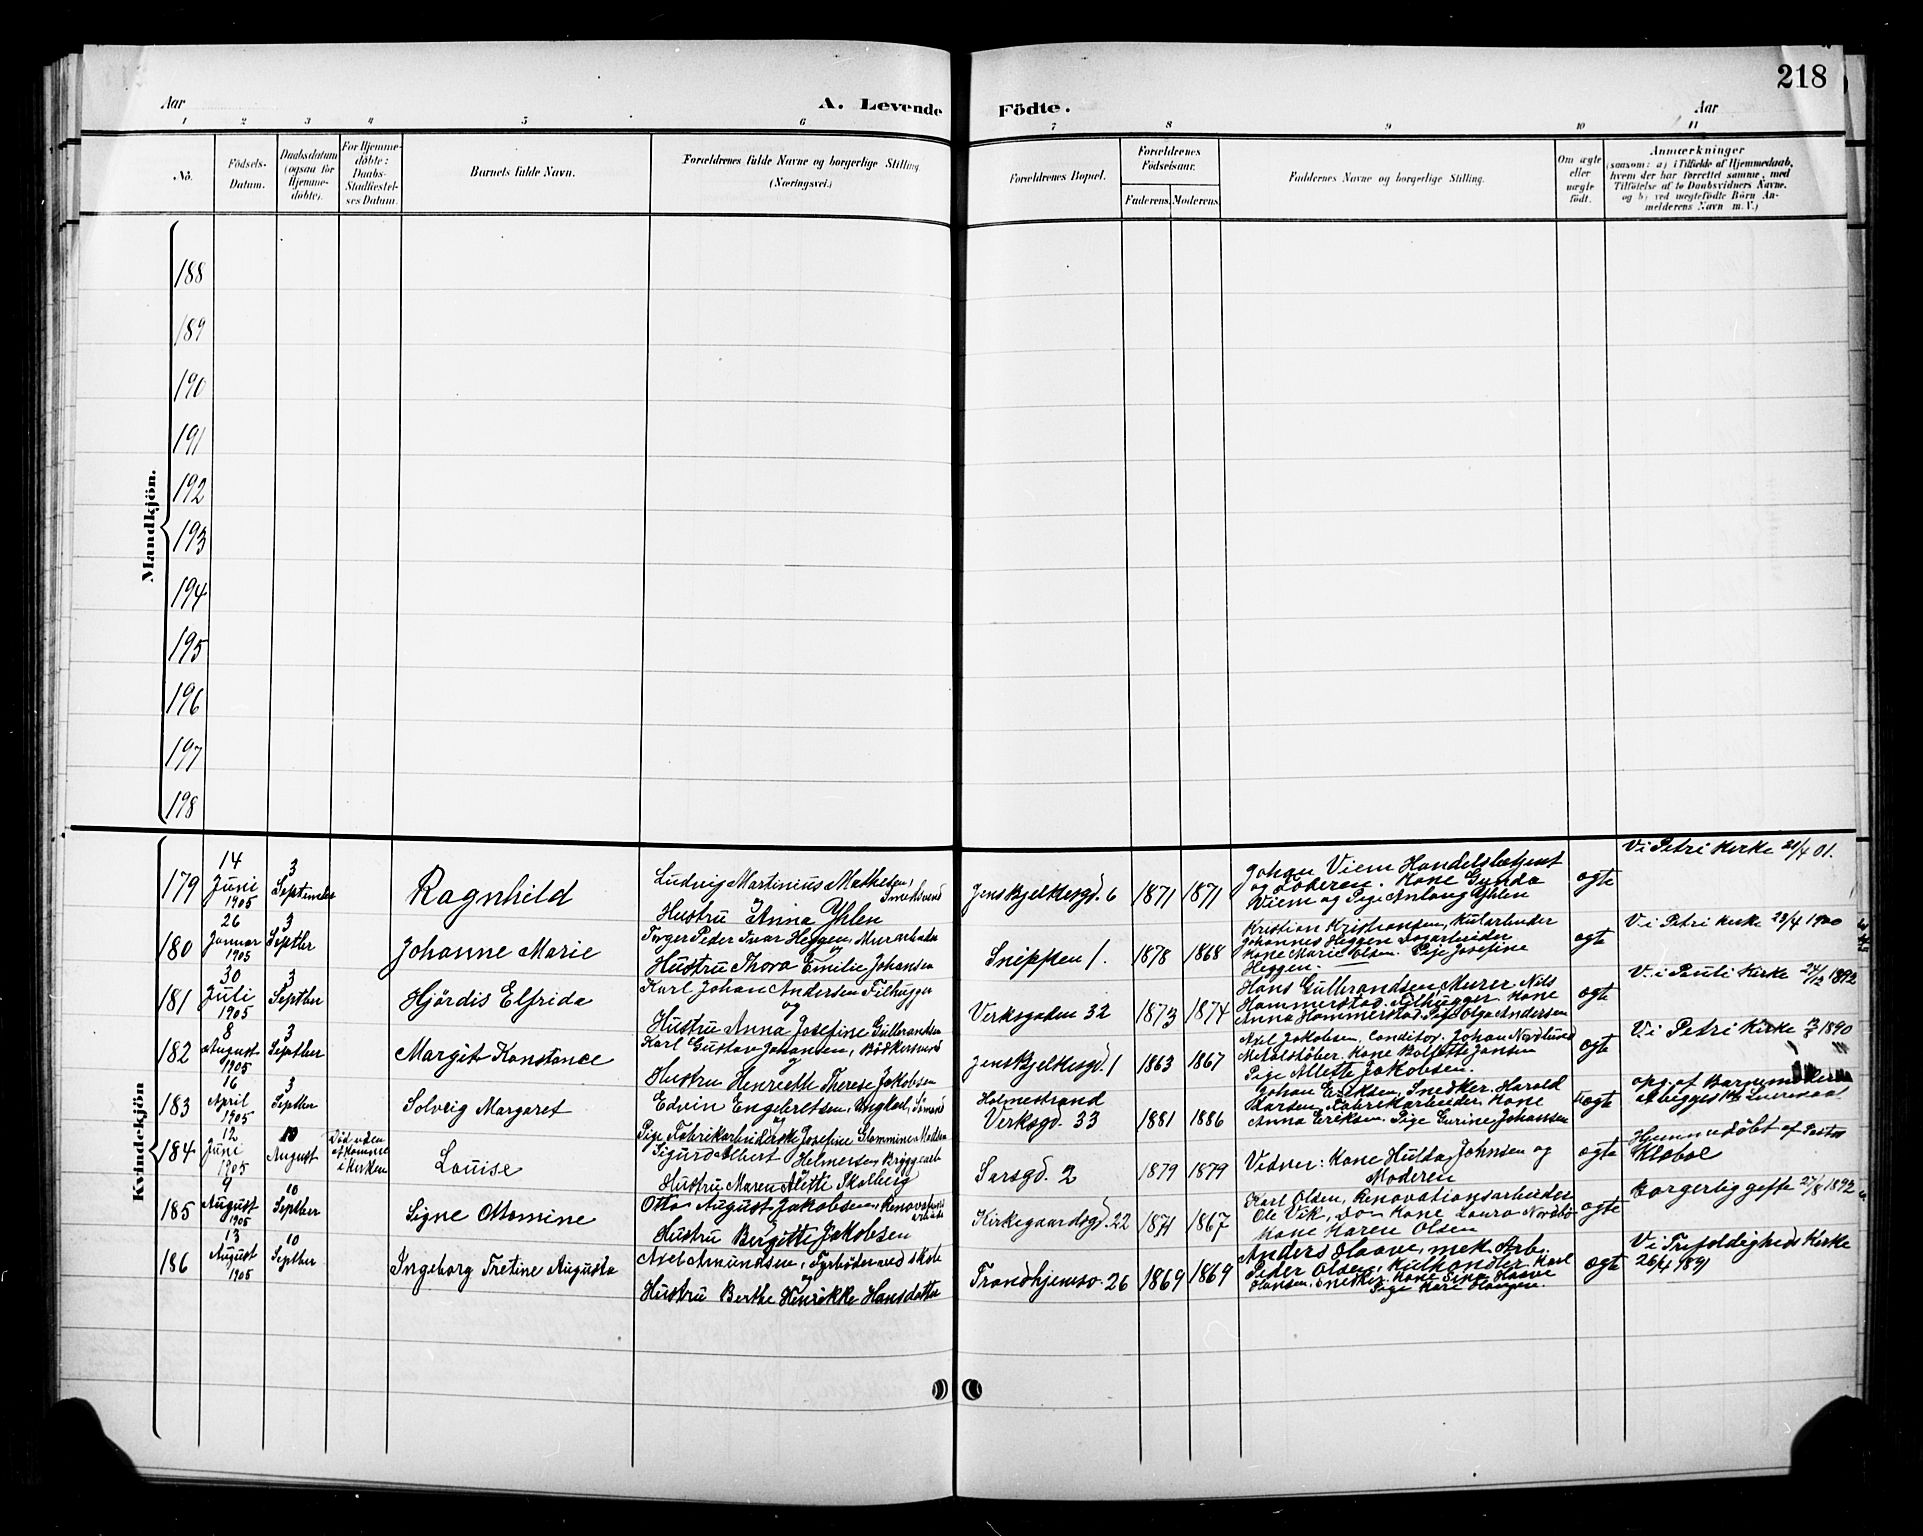 218
Aar
A. Levende Födte.
Aar
1 2 3 4 5 6 7 8 9 10 11
No.
Födsels-
Datum.
Daabsdatum
(ogsaa for
Hjemme-
døbte).
For Hjemme-
døbte:
Daabs-
Stadfæstel-
ses Datum.
Barnets fulde Navn.
Forældrenes fulde Navne og borgerlige Stilling
(Næringsvei.)
Forældrenes Bopæl.
Forældrenes
Födselsaar.
Faderens. Moderens.
Faddernes Navne og borgerlige Stilling.
Om ægte
eller
uægte
født.
Anmærkninger
(saasom: a) i Tilfælde af Hjemmedaab,
hvem der har forrettet samme, med
Tilføielse af to Daabsvidners Navne,
og b) ved uægtefödte Börn An-
melderens Navn m. V.)
Mandkjön.
188
189
190
191
192
193
194
195
196
197
198
Kvindekjön
179
14
Juni
1905
3
September
Ragnhild
Ludvig Martinius Mathelsen,
Smedsvend
Hustru Anna Yhlen
Jens Bjelkesgd. 6
1871
1871
Johan Viem Handelsbetjent
og Faderen. Kone Gunda
Viem og Pige Anlaug Yhlen
ægte
Vi Petri Kirke 21/4 01.
180
26
Januar
1905
3
Septber
Johanne Marie
Torger Peder Ivar Heggen, Murarbeider
og
Hustru Thora Emilie Johansen
Snippen 1.
1878
1868
Kristian Kristiansen, Kularbeider
Johannes Heggen Dagarbeider
Kone Marie Olsen. Pige Josefine
Heggen.
ægte
Vi Petri Kirke 22/4 1900
181
30
Juli
1905
3
Septber
Hjördis Elfrida
Karl Johan Andersen Filhugger
og
Hustru Anna Josefine Gulbrandsen
Verksgaden 32
1873
1874
Hans Gulbrandsen Murer Nils
Hammerstad, Filhugger. Kone
Anna Hammerstad. Pige Olga Andersen
ægte
V. i Pauli Kirke 24/12 1892
182
8
August
1905
3
Septber
Margit Konstance
Karl Gustav Johansen, Bödkersvend
og
Hustru Henriette Therese Jakobsen
Jens Bjelkesgd. 1
1863
1867
Axel Jakobsen, Conditor. Johan Nordlund
Metalstøber. Kone Bolette Jansen
Pige Alette Jakobsen.
ægte
Vi Petri Kirke 1890
183
16
April
1905
3
Septber
Solveig Margaret
Edvin Engebretsen, Ungkarl, Sømand
og
Pige Fabrikarbeiderske Josefine Glommine Madsen
Holmestrand
Verksgd. 33
1881
1886
Johan Eriksen, Snedker. Harald
Larsen, Fabrikarbeider, Kone
Anna Eriksen. Pige Gurine Johansen
uægte
opg. af Barnemoderen
184
12
Juni
1905
10
August
Död uden
at komme
i Kirken
Louise
Sigurd Albert Helmersen Bryggearb.
Hustru Maren Alette Skolberg
Sarsgd. 2
1879
1879
Vidner: Kone Hulda Johnsen og
Moderen
ægte
Hjemmedöbt af Pastor
Kloboe
185
9
August
1905
10
Septber
Signe Ottomine
Otto August Jakobsen, Renovations-
arbeider
Hustru Bergitte Jakobsen
Kirkegaardsgd. 22
1871
1867
Karl Olsen, Renovationsarbeider
Ole Vik, do Kone Laura Nordbö
Kone Maren Olsen
ægte
borgerlig gifte 27/8 1892
186
13
August
1905
10
Septber
Ingeborg Tretine Augusta
Axel Amundsen, Fyrböder ved skole
og
Hustru Berthe Henrikke Hansdatter
Trondhjemsv. 26
1869
1869
Anders Haave, mek. Arb.
Peder Olsen, Kulhandler, Karl
Hansen, Snedker. Kone Sina Haave
Pige Kari Haugen
ægte
Vi Trefoldigheds Kirke
26/4 1891